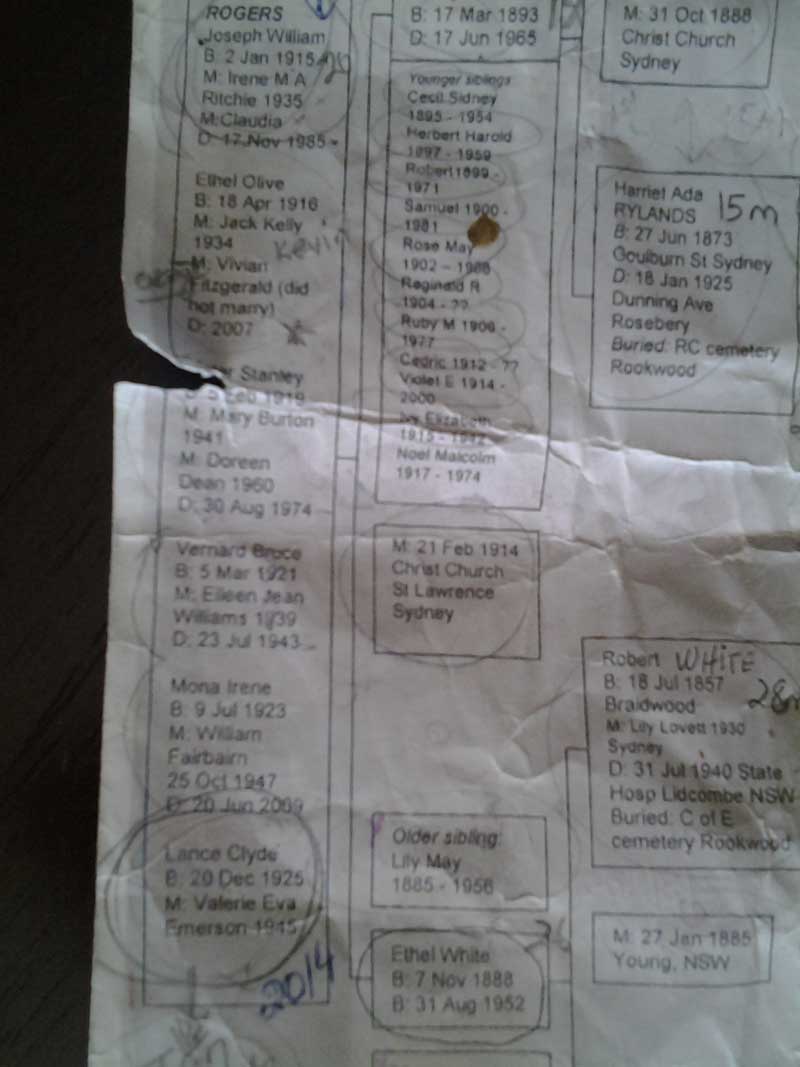 ROGERS
Joseph William
B: 2 Jan 1915
M: Irene M A
Ritchie 1935
M:Claudia
D: 17 Nov 1985
Ethel Olive
B: 18 Apr 1916
M: Jack Kelly
1934
Kevin
M: Vivian
Fitzgerald (did
not marry)
D: 2007
Stanley
B: 5 Feb 1919
M: Mary Burton
1941
M: Doreen
Dean 1960
D: 30 Aug 1974
Vernard Bruce
B: 5 Mar 1921
M: Eileen Jean
Williams 1939
D: 23 Jul 1943
Mona Irene
B: 9 Jul 1923
M: William
Fairbairn
25 Oct 1947
D: 20 Jun 2009
Lance Clyde
B: 20 Dec 1925
M: Valerie Eva
Emerson 1945
2014
B: 17 Mar 1893
D: 17 Jun 1965
Younger siblings
Cecil Sidney
1895 - 1954
Herbert Harold
1897 - 1959
Robert 1899 -
1971
Samuel 1900 -
1981
Rose May
1902 – 1988
Reginald R
1904 - ??
Ruby M 1906 -
1977
Cedric 1912 - ??
Violet E 1914 -
2000
Ivy Elizabeth
1915 -
Noel Malcolm
1917 - 1974
M: 21 Feb 1914
Christ Church
St Lawrence
Sydney
Older sibling:
Lily May
1885 - 1956
Ethel White
B: 7 Nov 1888
B: 31 Aug 1952
M: 31 Oct 1888
Christ Church
Sydney
Harriet Ada
RYLANDS 15m
B: 27 Jun 1873
Goulburn St Sydney
D: 18 Jan 1925
Dunning Ave
Rosebery
Buried: RC cemetery
Rookwood
Robert WHITE
B: 18 Jul 1857
Braidwood 28m
M: Lily Lovett 1930
Sydney
D: 31 Jul 1940 State
Hosp Lidcombe NSW
Buried: C of E
cemetery Rookwood
M: 27 Jan 1885
Young, NSW